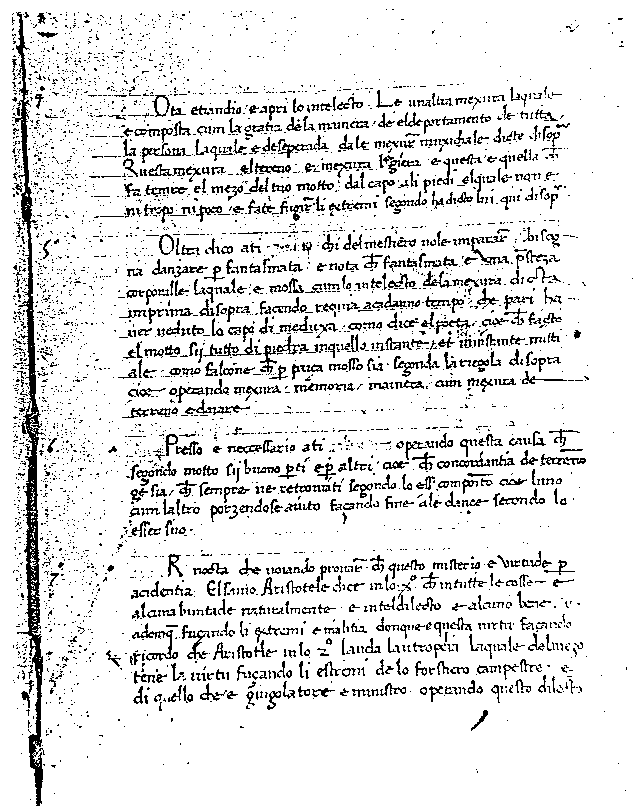 Ota etiandio e apri lo intelecto. Le unaltra mexura laquale
e composta cum la gratia dela maniera de el deportamento de tutta
la persona laquale e deseperada dale mexure muxichale dicte disop
Questa mexura el tereno e mexura legiera e questa e quella che
fa tenire el mezo del tuo motto dal capo ali piedi elquale non e
ni tropo ni poco e fate fugire li extremi segondo ha dicto lui qui disop
5 Oltra dico ati chi del mestiero vole imparare bisog
na danzare per fantasmata e nota che fantasmata e una presteza
corporalle laquale e mossa cum lo intelecto dela mexura dicta
imprima disopra facendo requia acadauno tempo che pari ha
ver veduto lo capo di meduxa como dice el poeta cioe che facto
el motto sij tutto di piedra inquello instante et in instante mitti
ale como falcone che per paica mosso sia segonda la riegola disopra
cioe operando mexura memoria maniera cum mexura de
terreno e daiare
6 Presso e neccessario ati operando questa causa che
segondo motto sij buono per ti e per altri cioe che concordantia de terreno
ge sia che sempre ve retrovati segondo lo esser composito cioe luno
cum laltro porzendose aiuto facando fine ale dance secondo lo
esser suo
7 R nocta che voiando provare che questo misterio e virtude per
acidentia El savio Aristotele dice in lo Xo che in tutte le cosse e
alcuna buntade naturalmente e in tel dilecto e alcuno bene
adonque fuçando li extremi e malitia donque e questa virtu façando
ricordo che Aristotle in lo 2o lauda la utropeia laquale del mezo
tene la virtu fuçando li estremi de lo forstiero campestre e
di quello che e giugolatore e ministro operando questo dilecto